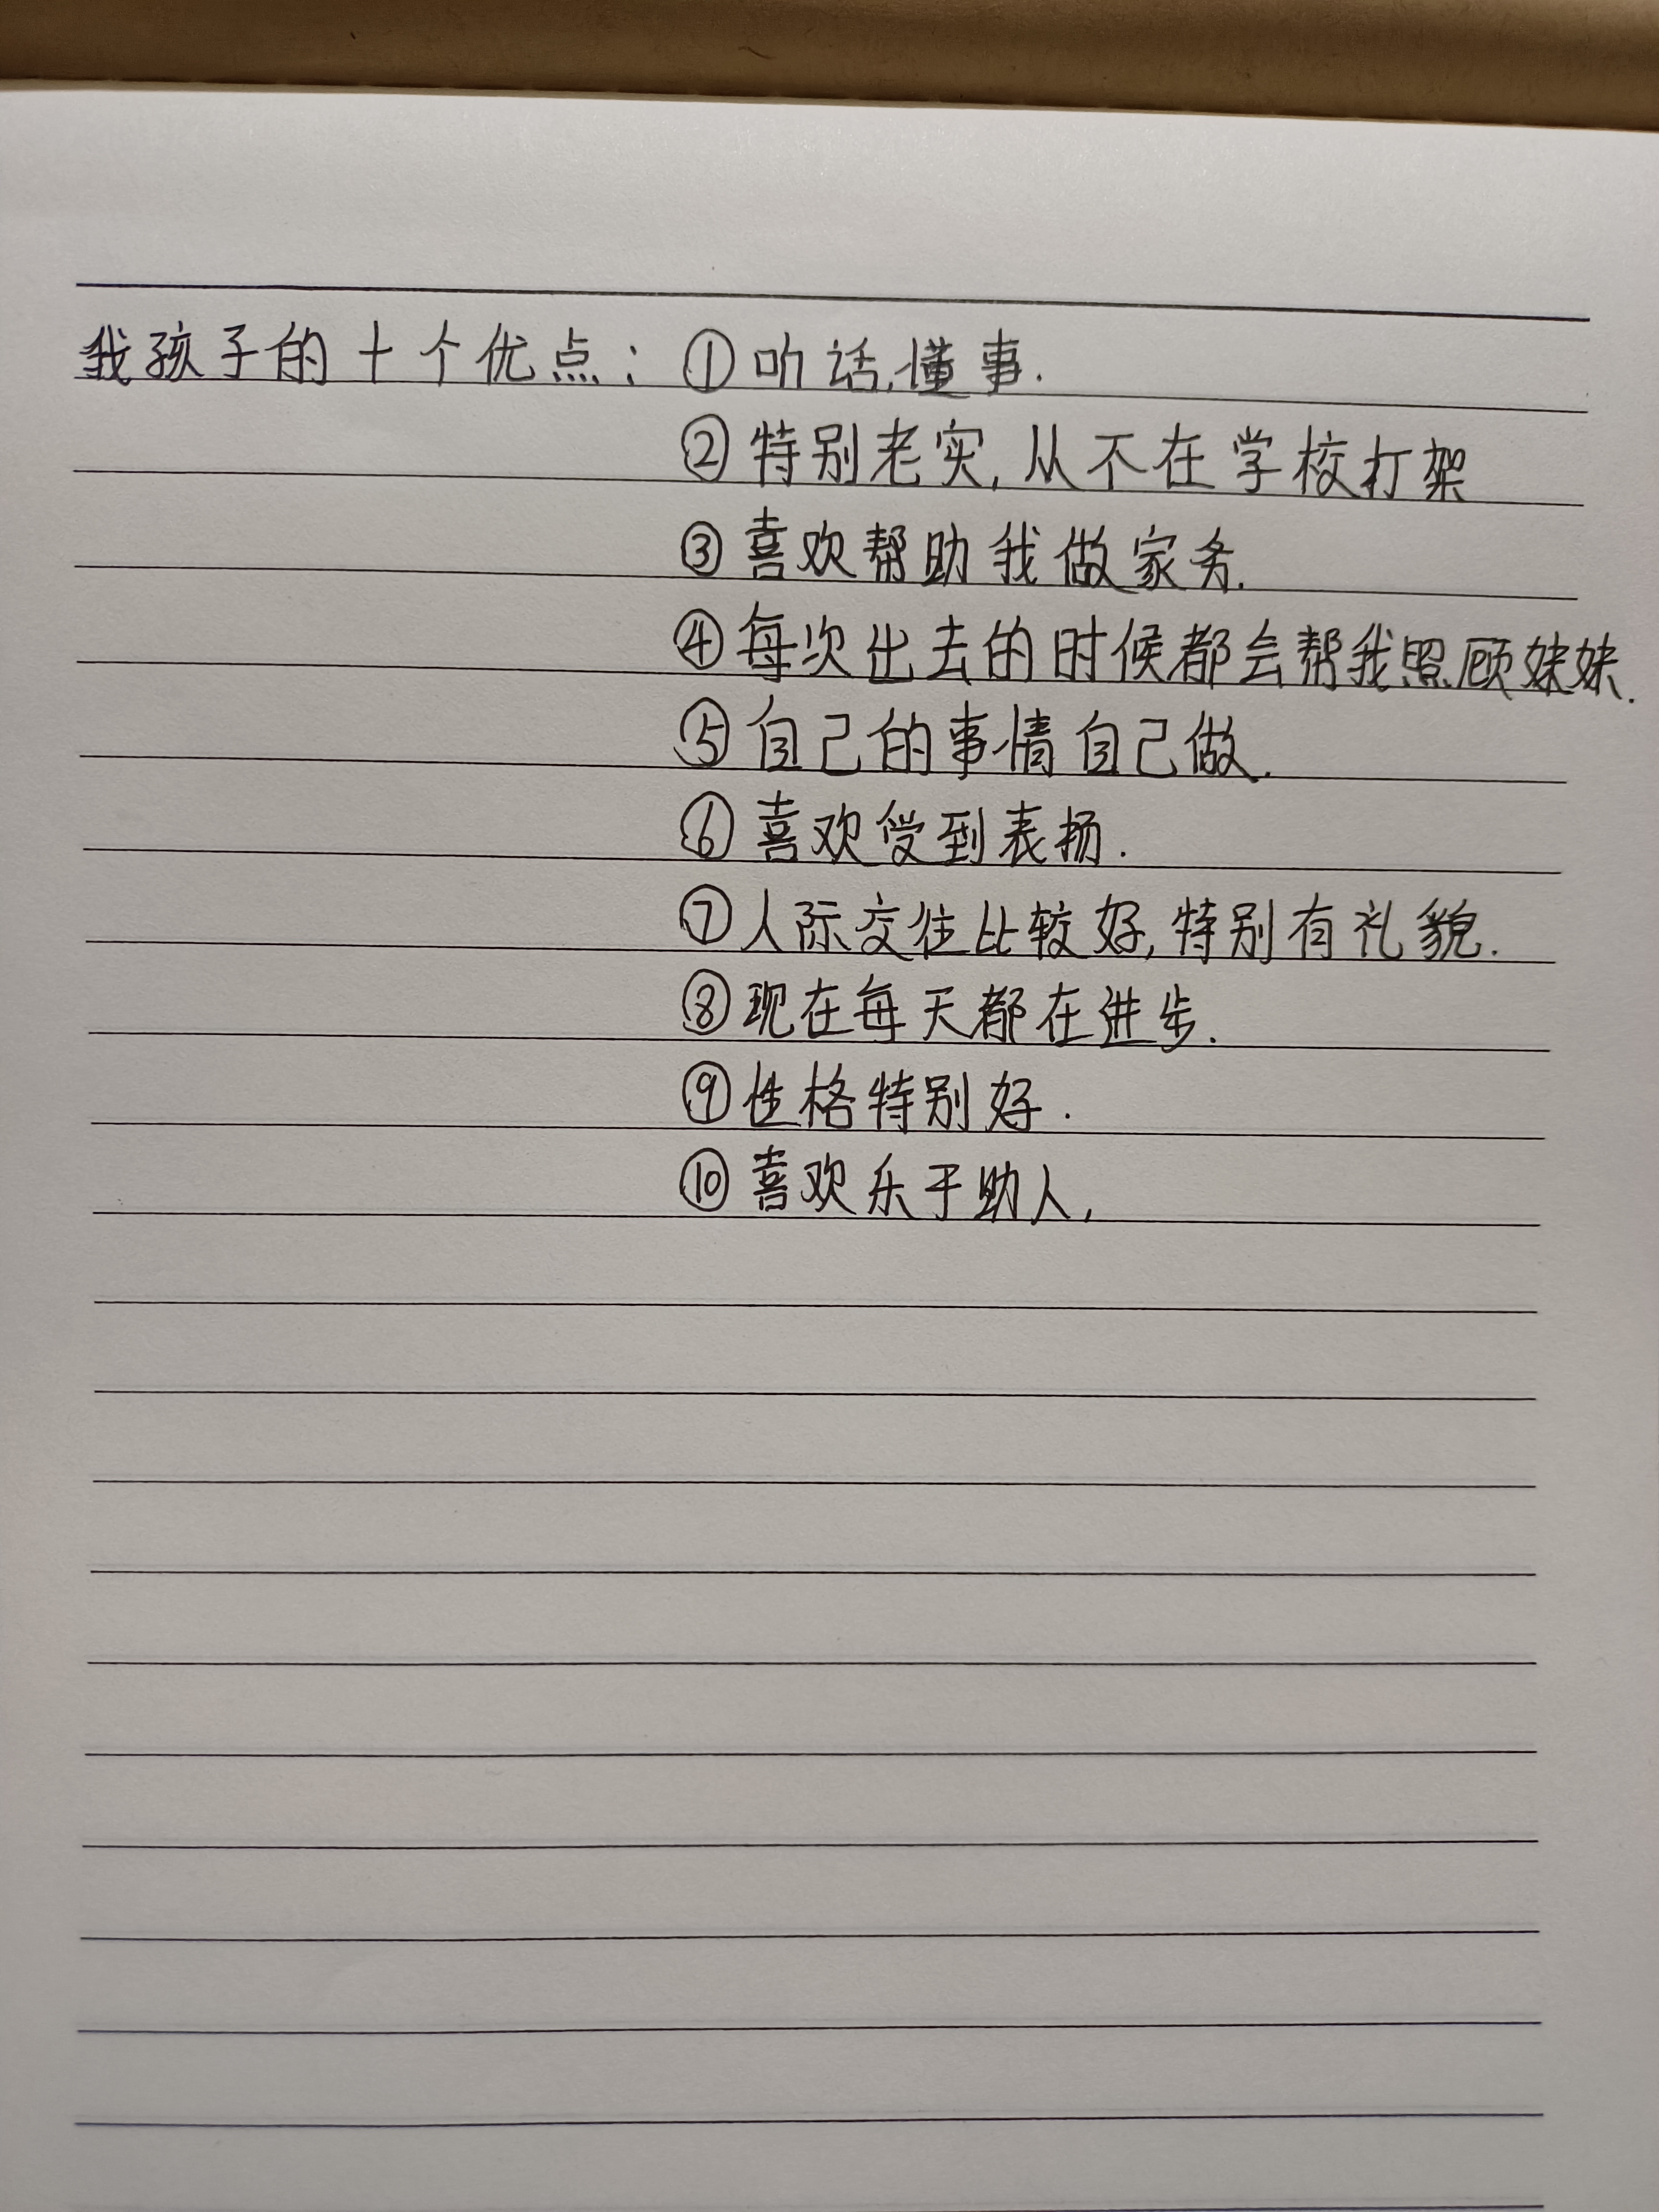 我孩子的十个优点：①听话,懂事.
②特别老实,从不在学校打架
③喜欢帮助我做家务.
④每次出去的时候都会帮我照顾妹妹.
⑤自己的事情自己做.
⑥喜欢受到表扬.
⑦人际交往比较好,特别有礼貌.
⑧现在每天都在进步.
⑨性格特别好.
⑩喜欢乐于助人,